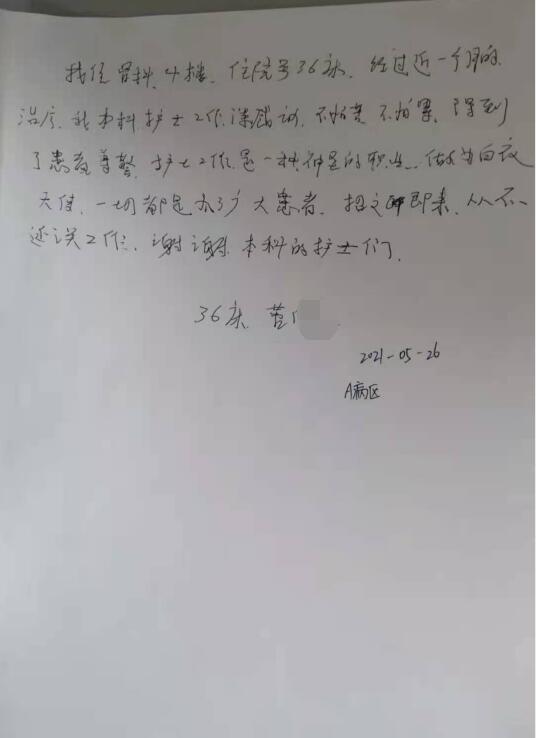 我住骨科,4楼,住院号36床,经过近一个月的
治疗,我本科护士工作深感动,不怕苦不怕累,得到
了患者尊敬,护士工作是一种神圣的职业,做为白衣
天使,一切都是为了广大患者,招之即来,从不
延误工作,谢谢本科的护士们.
36床,营
2021-05-26
A病区